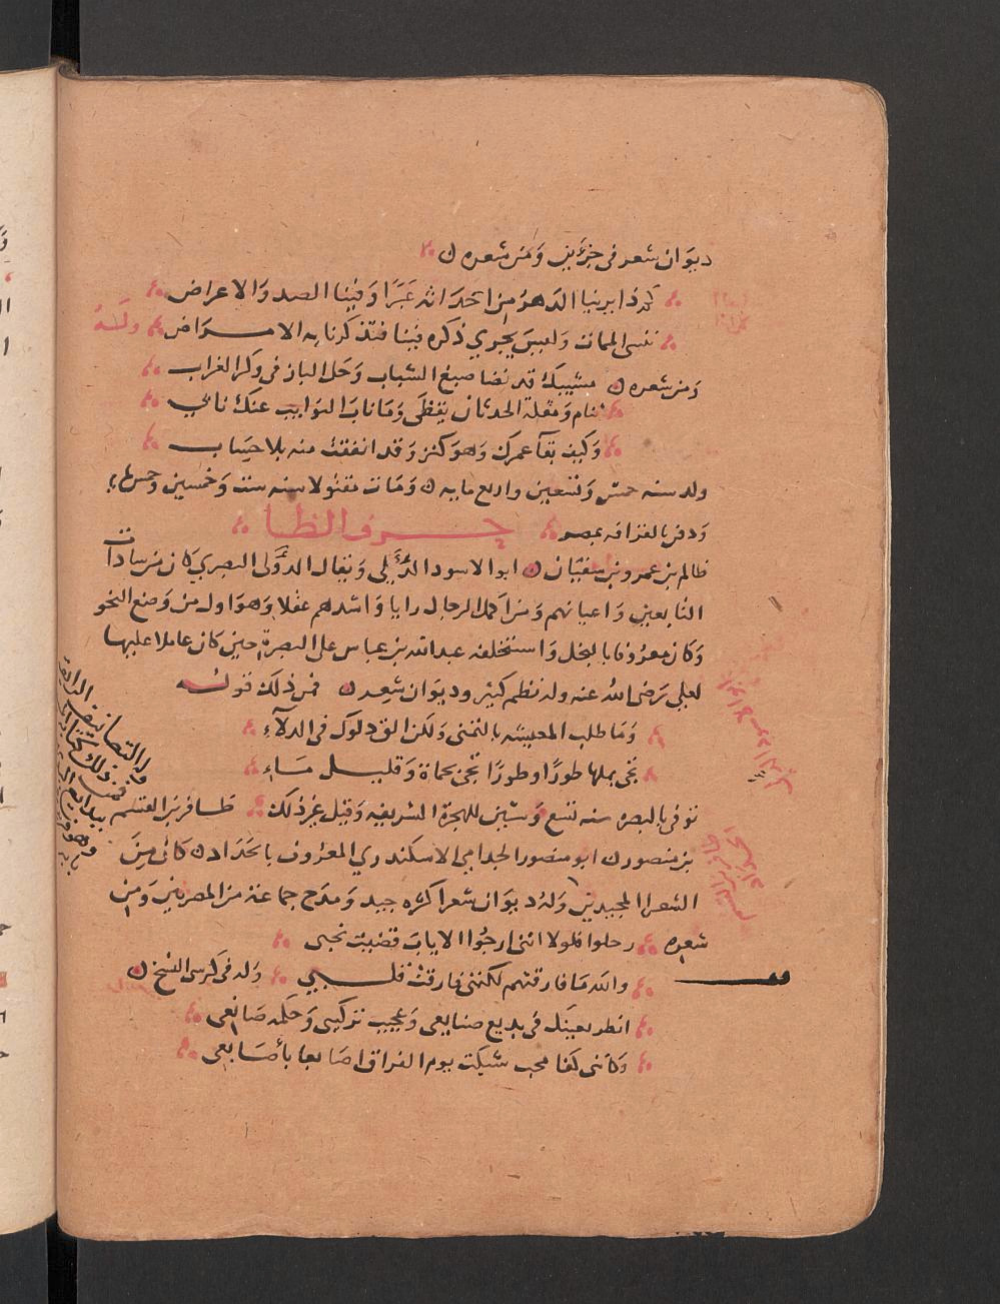 ديوان شعر في جزئين ومن شعره
كم ذا يرينا الدهر من احداثه عبرا وفينا الصد والاعراض
ننسى الممات وليس يجري ذكره فينا فتذكرنا به الامراض وله
ومن شعره مشيبك قد نضا صبغ الشباب وحل الباز في وكر الغراب
تنام ومقلة الحدثان يقظى وما ناب النوايب عنك نابي
وكيف بقا عمرك وهو كنز وقد انفقت منه بلا حساب
ولد سنه خمس وتسعين واربع مايه ومات مقتولا سنه ست وخمسين وخمس
ودفن بالقرافه بمصر حرف الظا
ظالم بن عمرو بن سفيان ابو الاسود الدئلي ويقال الدؤلي البصري كان من سادات
التابعين واعيانهم ومن اكمل الرجال رايا واشدهم عقلا وهو اول من وضع النحو
وكان معروفا بالبخل واستخلفه عبد الله بن عباس على البصرة حين كان عاملا عليها
لعلي رضي الله عنه وله نظم كثير وديوان شعر فمن ذلك قوله
وما طلب المعيشه بالتمني ولكن الق دلوك في الدلاء
تجي بملها طورا وطورا تجي بحماة وقليل ماء
توفي بالبصره سنه تسع وستين للهجرة الشريفه وقيل غير ذلك ظافر بن القسم
بن منصور ابو منصور الجدامي الاسكندري المعروف بالحداد كان من
الشعرا المجيدين وله ديوان شعر اكثره جيد ومدح جماعة من المصريين ومن
شعره رحلوا فلولا انني ارجوا الاياب قضيت نحبي
والله ما فارقتهم لكنني فارقت قلبي وله في كرسي النسخ
انظر بعينك في بديع صنايعي وعجيب تركيبي وحكمه صانعي
وكانني كفا محب شبكت يوم الفراق اصابعا بأصابعي